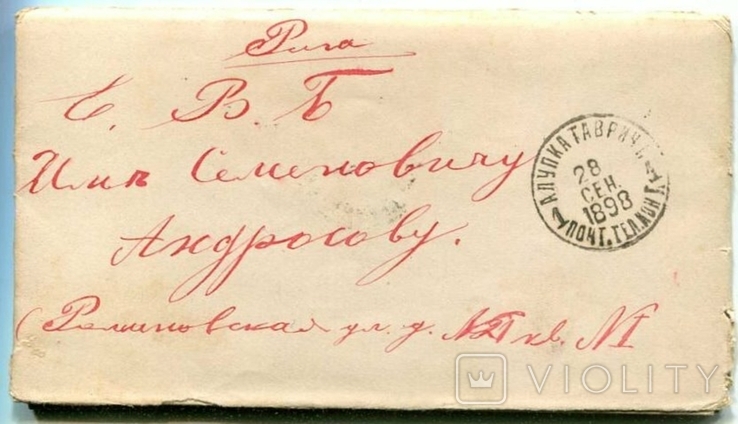 Рига
Е. В. Б
Семеновичу
Андросову.
ул. д. кв. №1
АЛУПКА ТАВРИЧ.
28
СЕН.
1898
ПОЧТ. ТЕЛ. КОН
VIOLITY